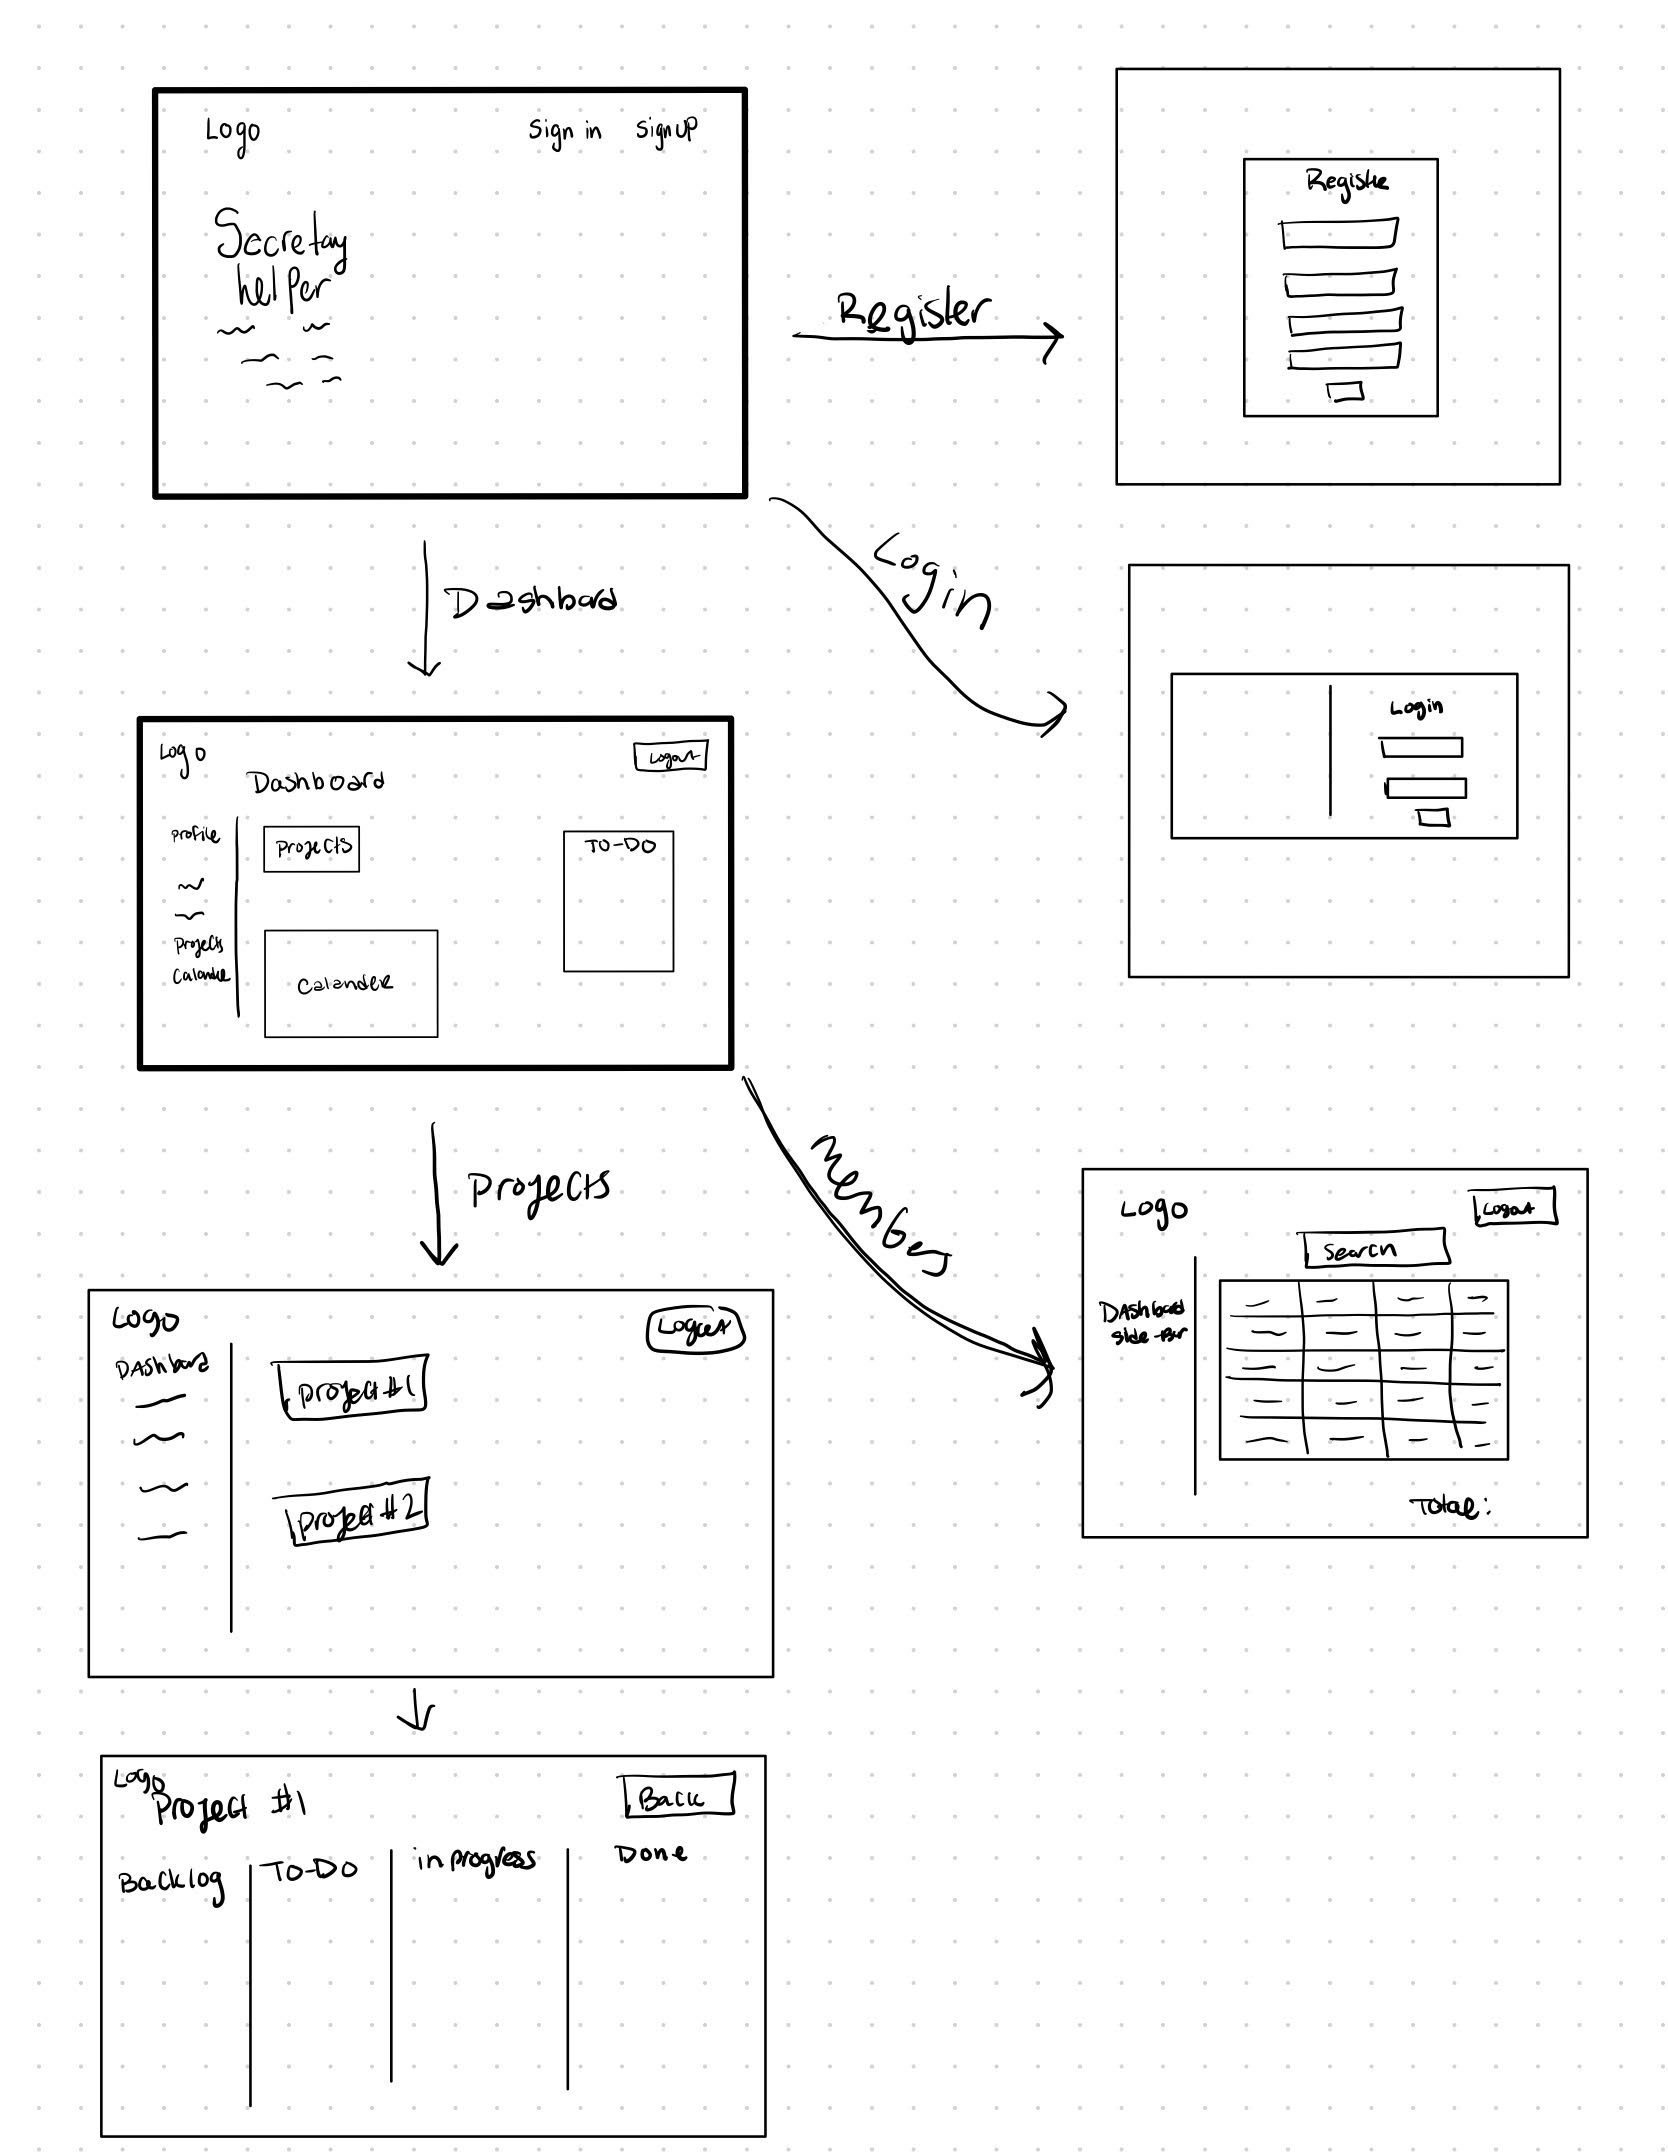 Logo
Sign in
Sign up
Secretay
helper
Register
Registe
Login
Login
Dashbord
Logo
Logout
Dashboard
Profile
Projects
Calande
Projects
TO-DO
Calander
Projects
Members
Logo
Logout
Search
DAshboad
side-Bar
Total:
Logo
Logout
DAshbord
Project #1
Project #2
Logo
Project #1
Back
Backlog
TO-DO
in progress
Done